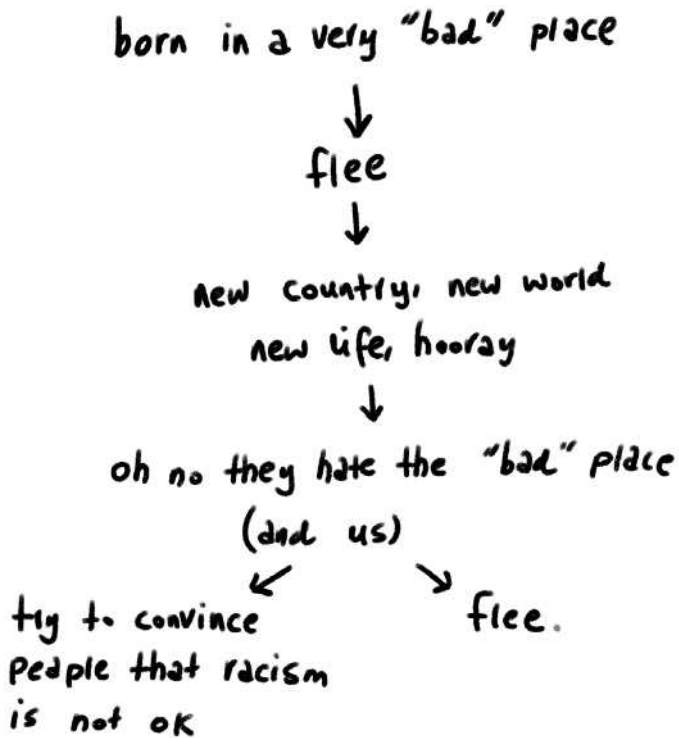 born in a very "bad" place
flee
new country, new world
new life, hooray
oh no they hate the "bad" place
(and us)
try to convince
people that racism
is not ok
flee.